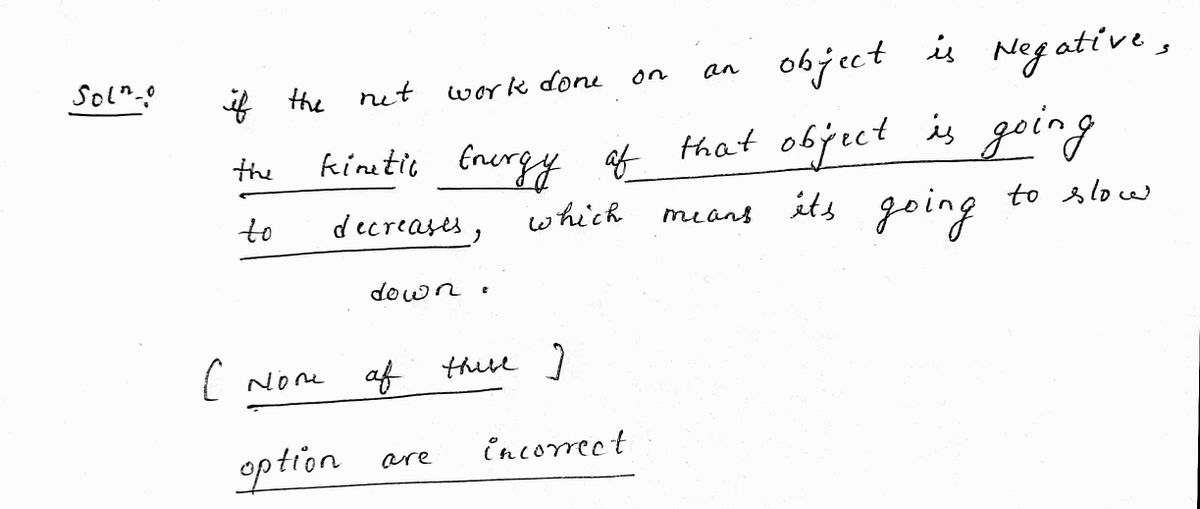 Soln-:
if the net work done on an object is Negative,
the kinetic Energy of that object is going
to decreases, which means its going to slow
down.
[ None of these ]
option are incorrect